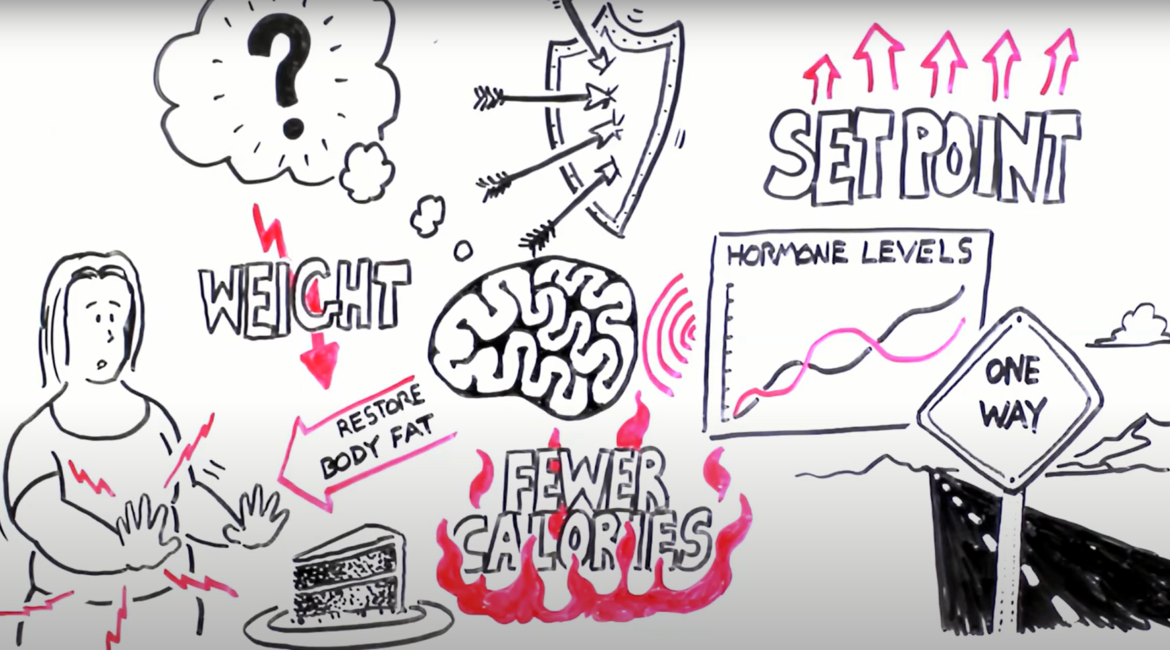 ?
SET POINT
WEIGHT
HORMONE LEVELS
RESTORE
BODY FAT
ONE
WAY
FEWER
CALORIES